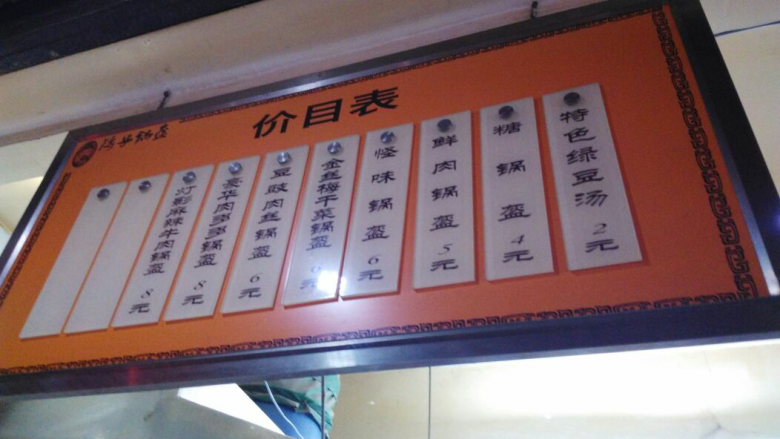 价目表
灯影麻辣牛肉锅盔 8元
豪华肉多多锅盔 8元
豆豉肉丝锅盔 6元
金丝梅干菜锅盔 6元
怪味锅盔 6元
鲜肉锅盔 5元
糖锅盔 4元
特色绿豆汤 2元